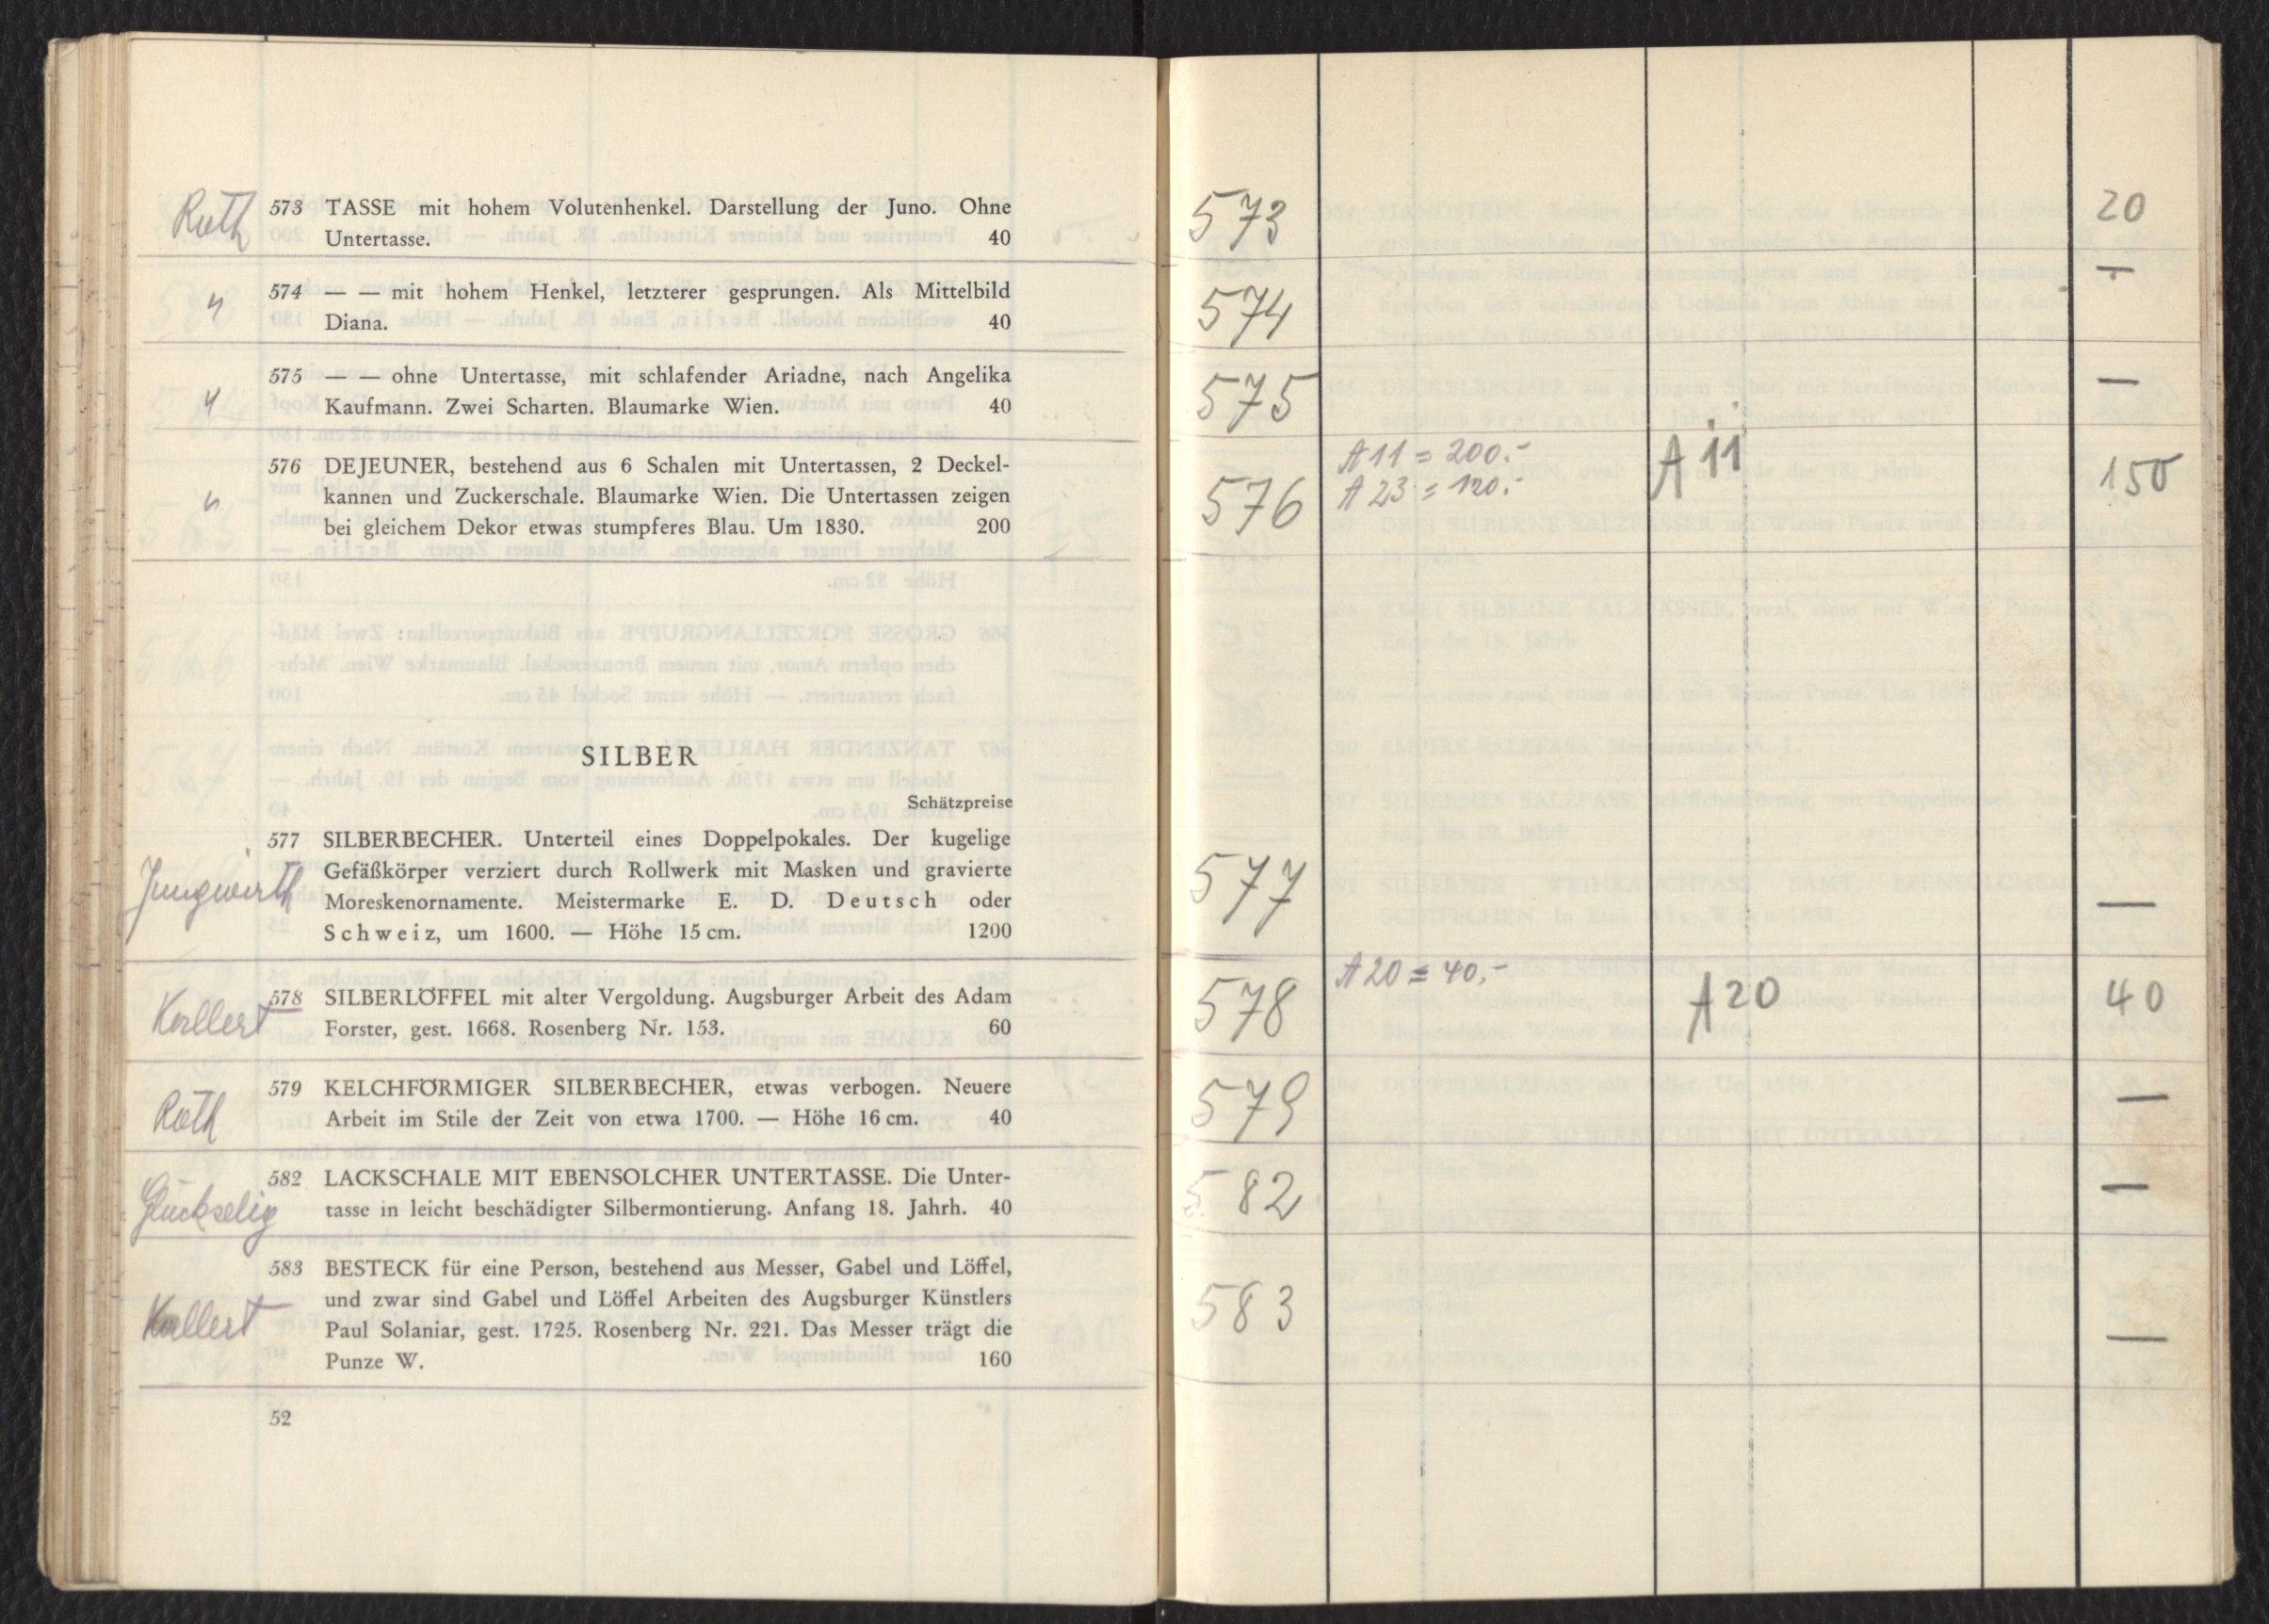 Roth 573 TASSE mit hohem Volutenhenkel. Darstellung der Juno. Ohne
Untertasse. 40
" 574 — — mit hohem Henkel, letzterer gesprungen. Als Mittelbild
Diana. 40
" 575 — — ohne Untertasse, mit schlafender Ariadne, nach Angelika
Kaufmann. Zwei Scharten. Blaumarke Wien. 40
" 576 DEJEUNER, bestehend aus 6 Schalen mit Untertassen, 2 Deckel-
kannen und Zuckerschale. Blaumarke Wien. Die Untertassen zeigen
bei gleichem Dekor etwas stumpferes Blau. Um 1830. 200
SILBER
Schätzpreise
Jungwirth 577 SILBERBECHER. Unterteil eines Doppelpokales. Der kugelige
Gefäßkörper verziert durch Rollwerk mit Masken und gravierte
Moreskenornamente. Meistermarke E. D. Deutsch oder
Schweiz, um 1600. — Höhe 15 cm. 1200
Kallert 578 SILBERLÖFFEL mit alter Vergoldung. Augsburger Arbeit des Adam
Forster, gest. 1668. Rosenberg Nr. 153. 60
Roth 579 KELCHFÖRMIGER SILBERBECHER, etwas verbogen. Neuere
Arbeit im Stile der Zeit von etwa 1700. — Höhe 16 cm. 40
Glückselig 582 LACKSCHALE MIT EBENSOLCHER UNTERTASSE. Die Unter-
tasse in leicht beschädigter Silbermontierung. Anfang 18. Jahrh. 40
Kallert 583 BESTECK für eine Person, bestehend aus Messer, Gabel und Löffel,
und zwar sind Gabel und Löffel Arbeiten des Augsburger Künstlers
Paul Solaniar, gest. 1725. Rosenberg Nr. 221. Das Messer trägt die
Punze W. 160
52
573 20
574 —
575 —
A 11 = 200.-
576 A 23 = 120.- A 11 150
577 —
A 20 = 40.-
578 A 20 40
579 —
582 —
583 —